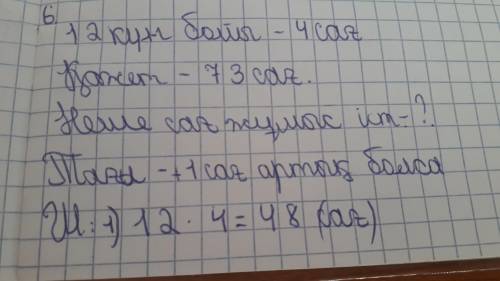 6.
12 күн бойы - 4 сағ
Қажет - 73 сағ.
Неше сағ жұмыс іст-?
Тағы - +1 сағ артық болса
Ш: 1) 12 · 4 = 48 (сағ)